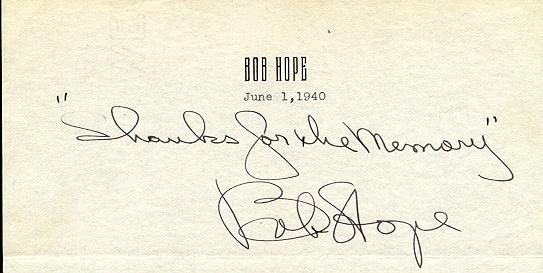 BOB HOPE
June 1,1940
"Thanks for the Memory"
Bob Hope